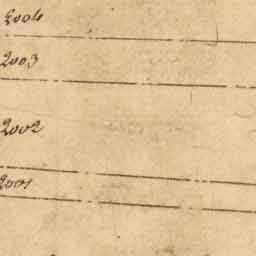 2004
2003
2002
2001